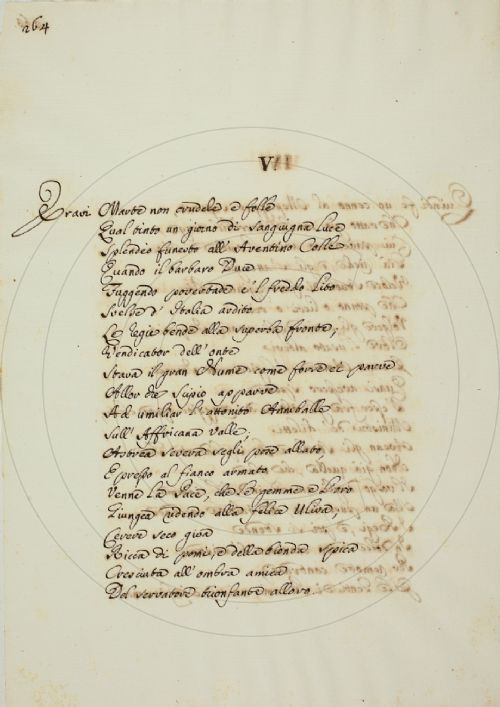 264
V
Eravi Marte non crudele e folle
Qual tinto un giorno di sanguigna luce
Splendeo funesto all' Aventino Colle
Quando il barbaro Duce
Fuggendo povertade e 'l freddo lito
Svelse d' Italia ardito
Le regie bende alla superba fronte;
Vendicator dell' onte
Stava il gran Nume come forse ei parve
Allor che Scipio apparve
Ad umiliar l' attonito Anniballe
Sull' Affricana Valle.
Astrea severa segli pose allato
E presso al fianco armato
Venne la Pace, che le gemme e l' oro
Giungea ridendo alla felice Uliva;
Cerere seco giva
Ricca di pomi, e della bionda spica
Cresciuta all' ombra amica
Del servatore trionfante alloro.